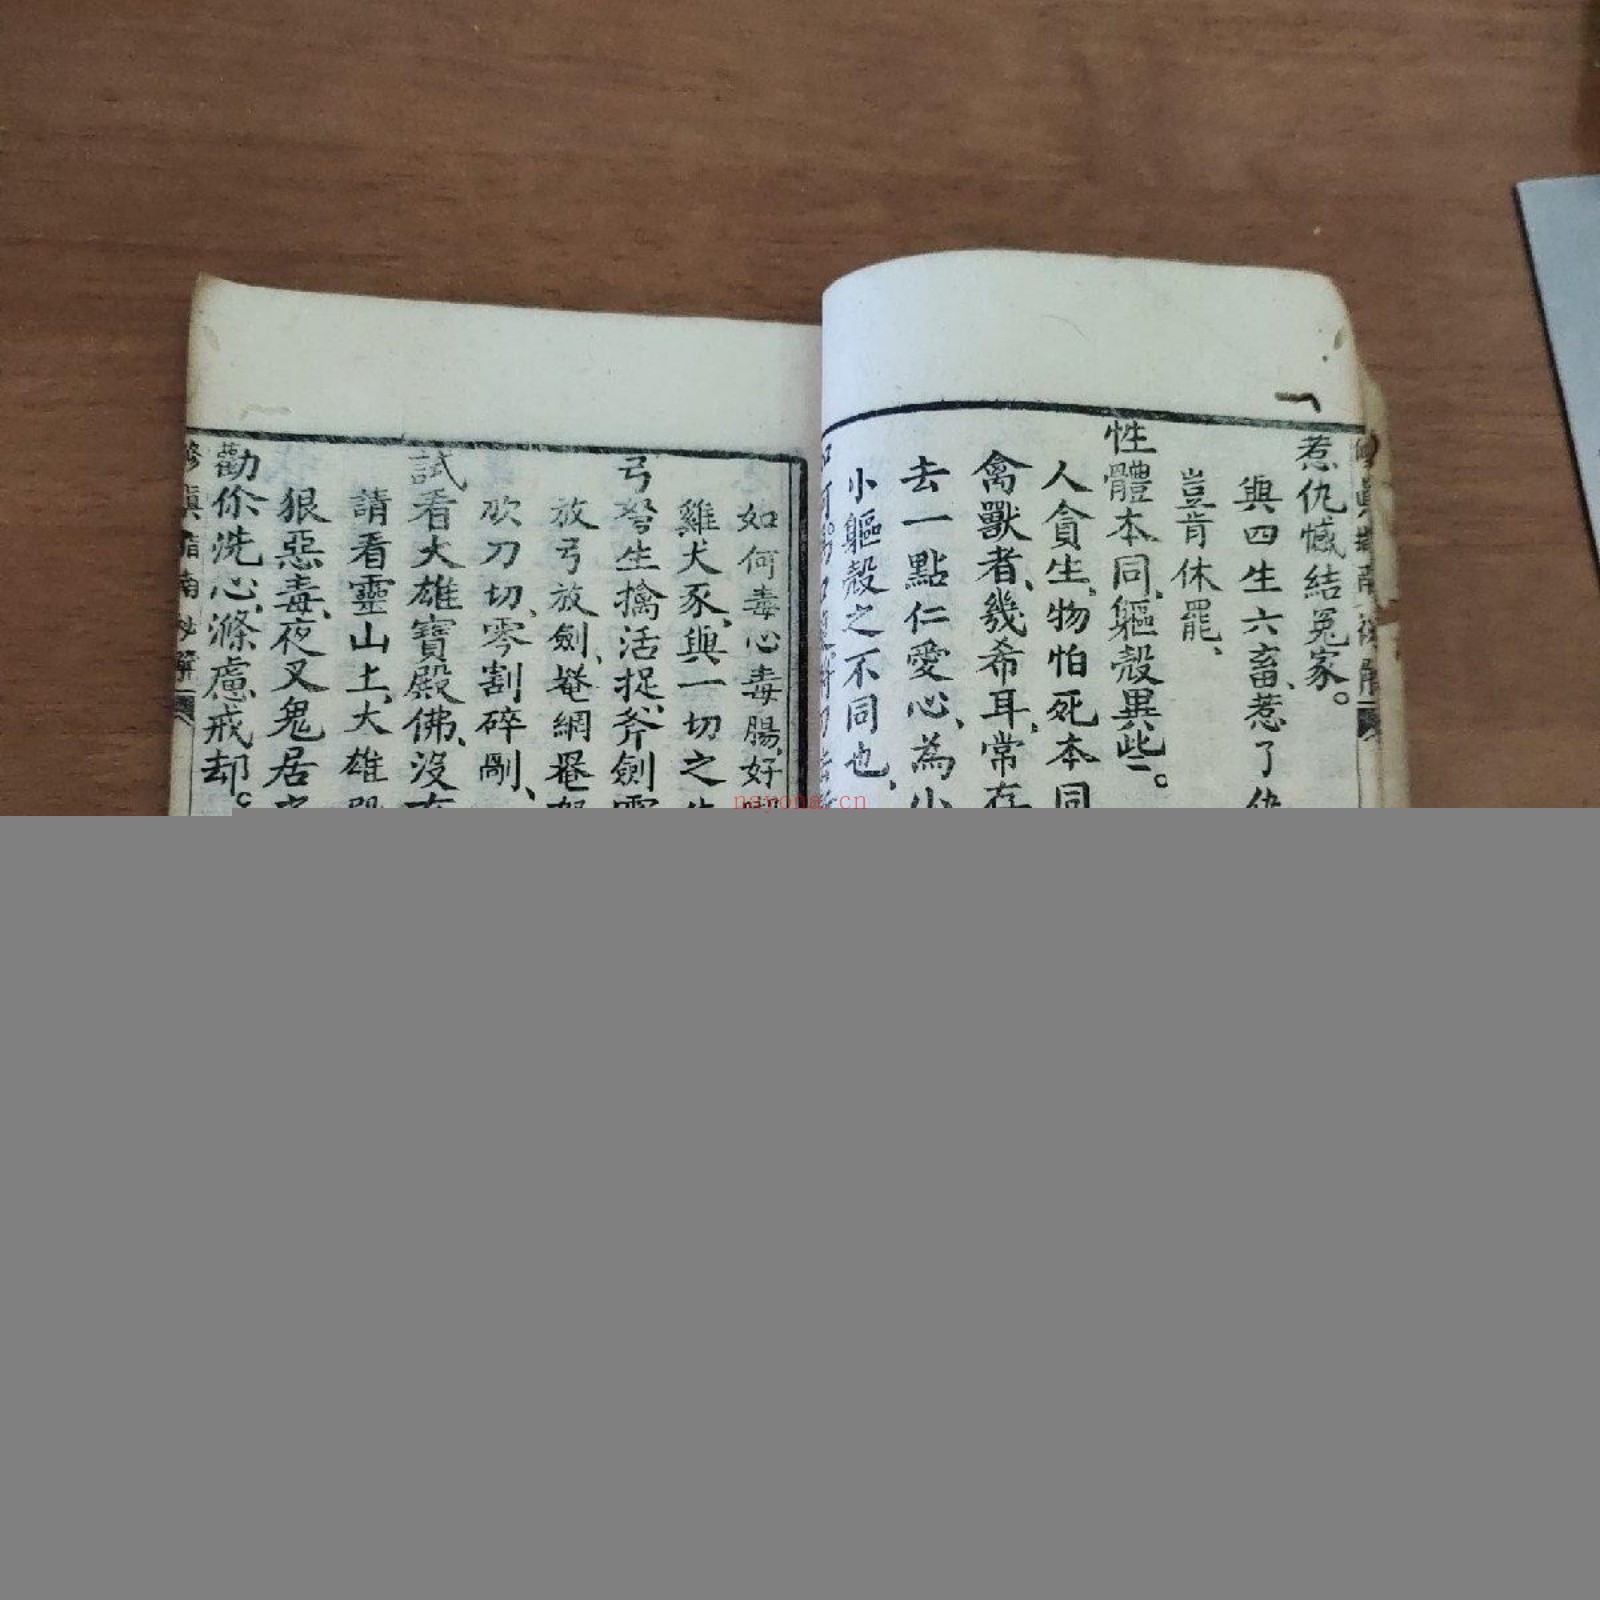 惹仇憾結冤家。
與四生六畜、惹了仇
豈肯休罷、
性體本同、軀殼異些。
人貪生、物怕死本同
禽獸者、幾希耳、常存
去一點仁愛心、為小
小軀殼之不同也、
如何毒心毒腸、好
雞犬豕、與一切之生
弓弩生擒活捉、斧劍
放弓放劍、撻網罨
砍刀切、零割碎剮、
試看大雄寶殿佛、沒有
請看靈山上、大雄
狠惡毒、夜叉鬼居
勸你洗心滌慮戒却。
修眞指南
nayona.cn